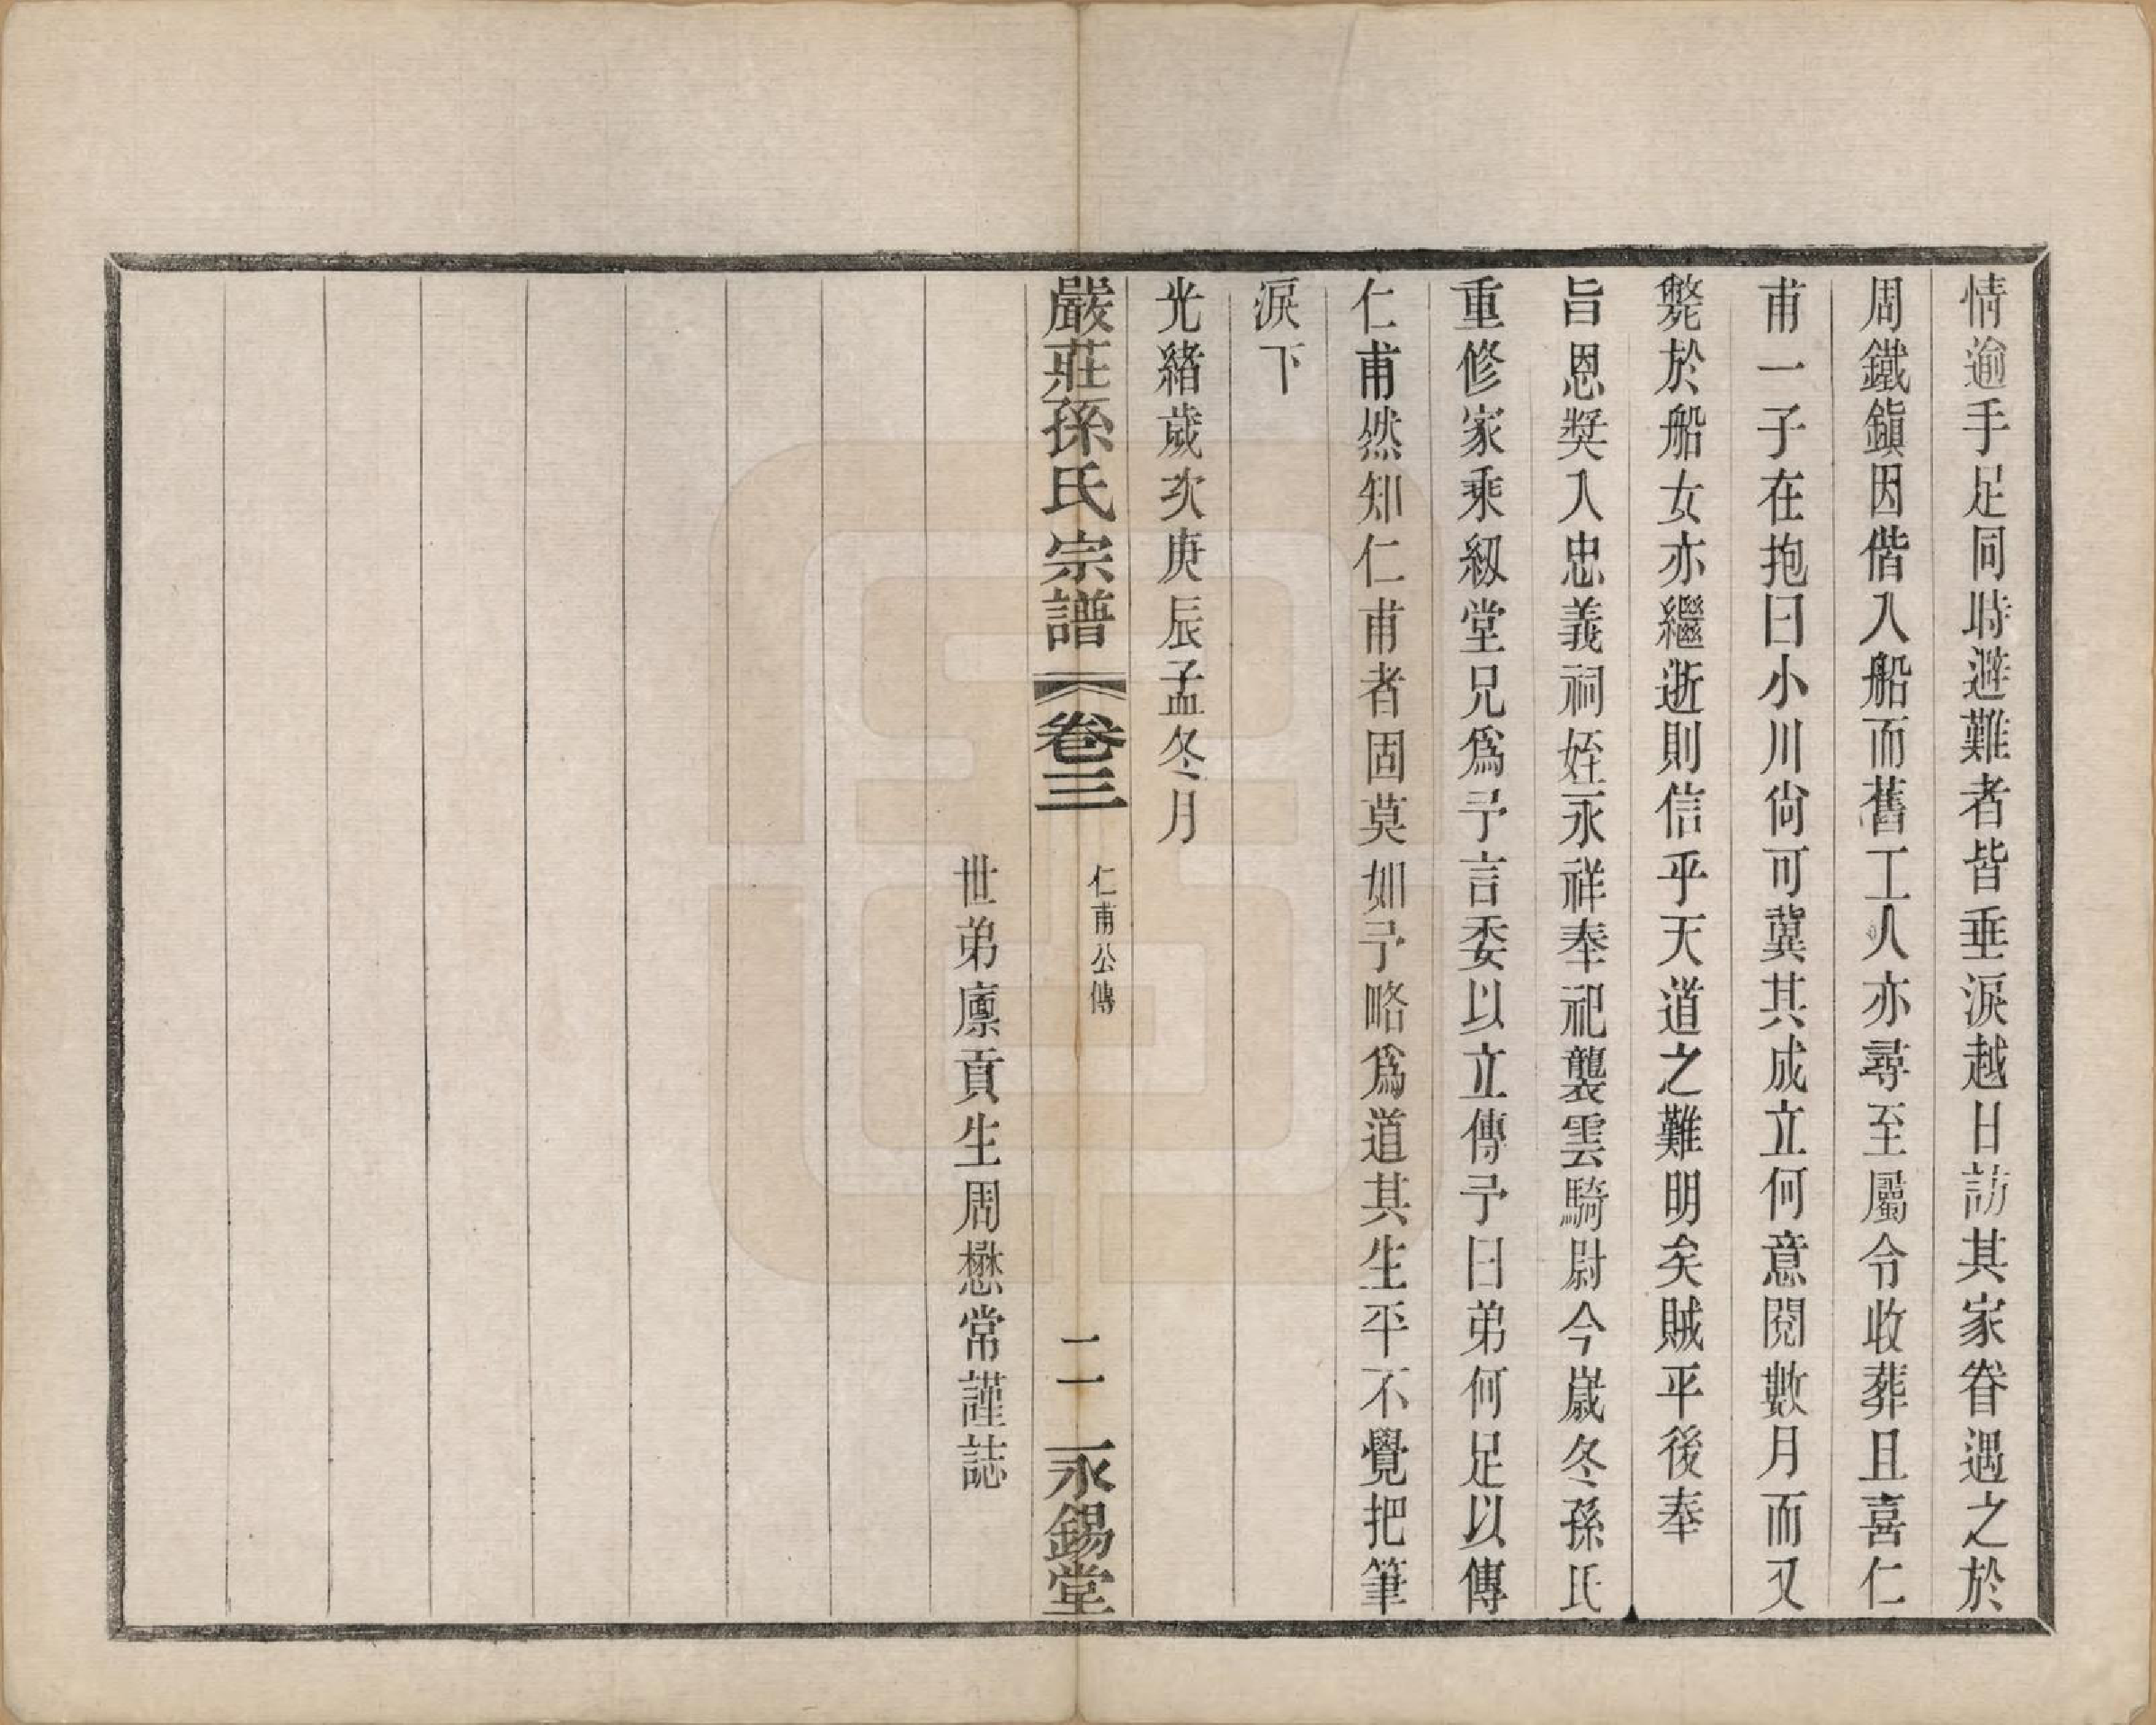 情逾手足同時避難者皆垂淚越日訪其家眷遇之於
周鐵鎭因偕入船而舊工人亦尋至屬令收葬且喜仁
甫一子在抱曰小川尙可冀其成立何意閱數月而又
斃於船女亦繼逝則信乎天道之難明矣賊平後奉
旨恩奬入忠義祠姪永祥奉祀襲雲騎尉今嵗冬孫氏
重修家乘紉堂兄爲予言委以立傳予曰弟何足以傳
仁甫然知仁甫者固莫如予略爲道其生平不覺把筆
淚下
光緒歲次庚辰孟冬月
嚴莊孫氏宗譜 卷三 仁甫公傳 二 永錫堂
世弟廩貢生周懋常謹誌